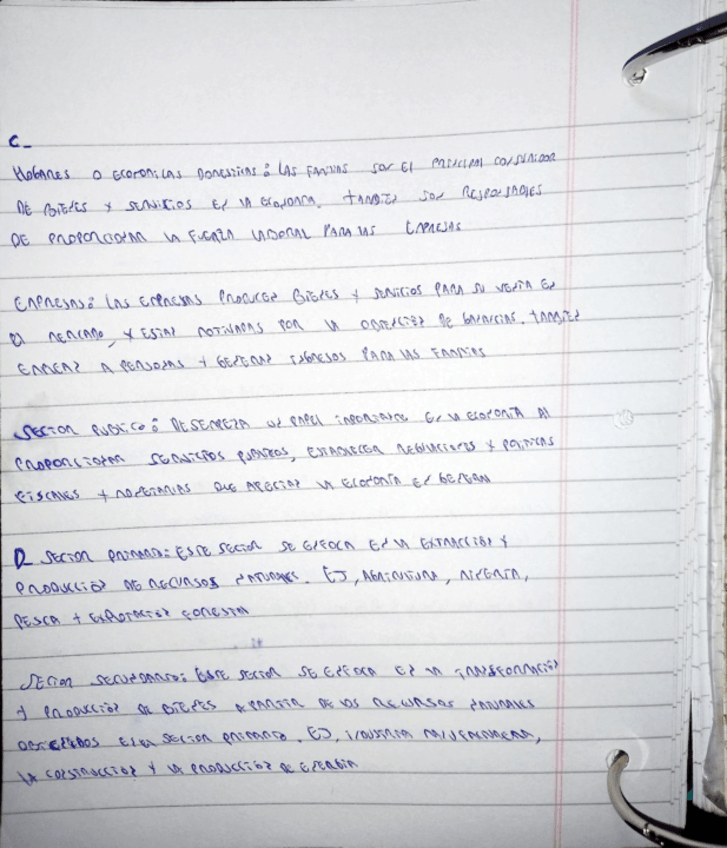 C_
HOGARES O ECONOMICAS DOMESTICAS: LAS FAMILIAS SON EL PRINCIPAL CONSUMIDOR
DE BIENES Y SERVICIOS EN LA ECONOMIA. TAMBIEN SON RESPONSABLES
DE PROPORCIONAR LA FUERZA LABORAL PARA LAS EMPRESAS
EMPRESAS: LAS EMPRESAS PRODUCEN BIENES Y SERVICIOS PARA SU VENTA EN
EL MERCADO, Y ESTAN MOTIVADAS POR LA OBTENCION DE GANANCIAS. TAMBIEN
EMPLEAN A PERSONAS Y GENERAN INGRESOS PARA LAS FAMILIAS
SECTOR PUBLICO: DESEMPEÑA UN PAPEL IMPORTANTE EN LA ECONOMIA AL
PROPORCIONAR SERVICIOS PUBLICOS, ESTABLECER REGULACIONES Y POLITICAS
FISCALES Y MONETARIAS QUE AFECTAN LA ECONOMIA EN GENERAL
D_ SECTOR PRIMARIO: ESTE SECTOR SE ENFOCA EN LA EXTRACCION Y
PRODUCCION DE RECURSOS NATURALES. EJ, AGRICULTURA, MINERIA,
PESCA Y EXPLOTACION FORESTAL
SECTOR SECUNDARIO: ESTE SECTOR SE ENFOCA EN LA TRANSFORMACION
Y PRODUCCION DE BIENES A PARTIR DE LOS RECURSOS NATURALES
OBTENIDOS EN EL SECTOR PRIMARIO. EJ, INDUSTRIA MANUFACTURERA,
LA CONSTRUCCION Y LA PRODUCCION DE ENERGIA